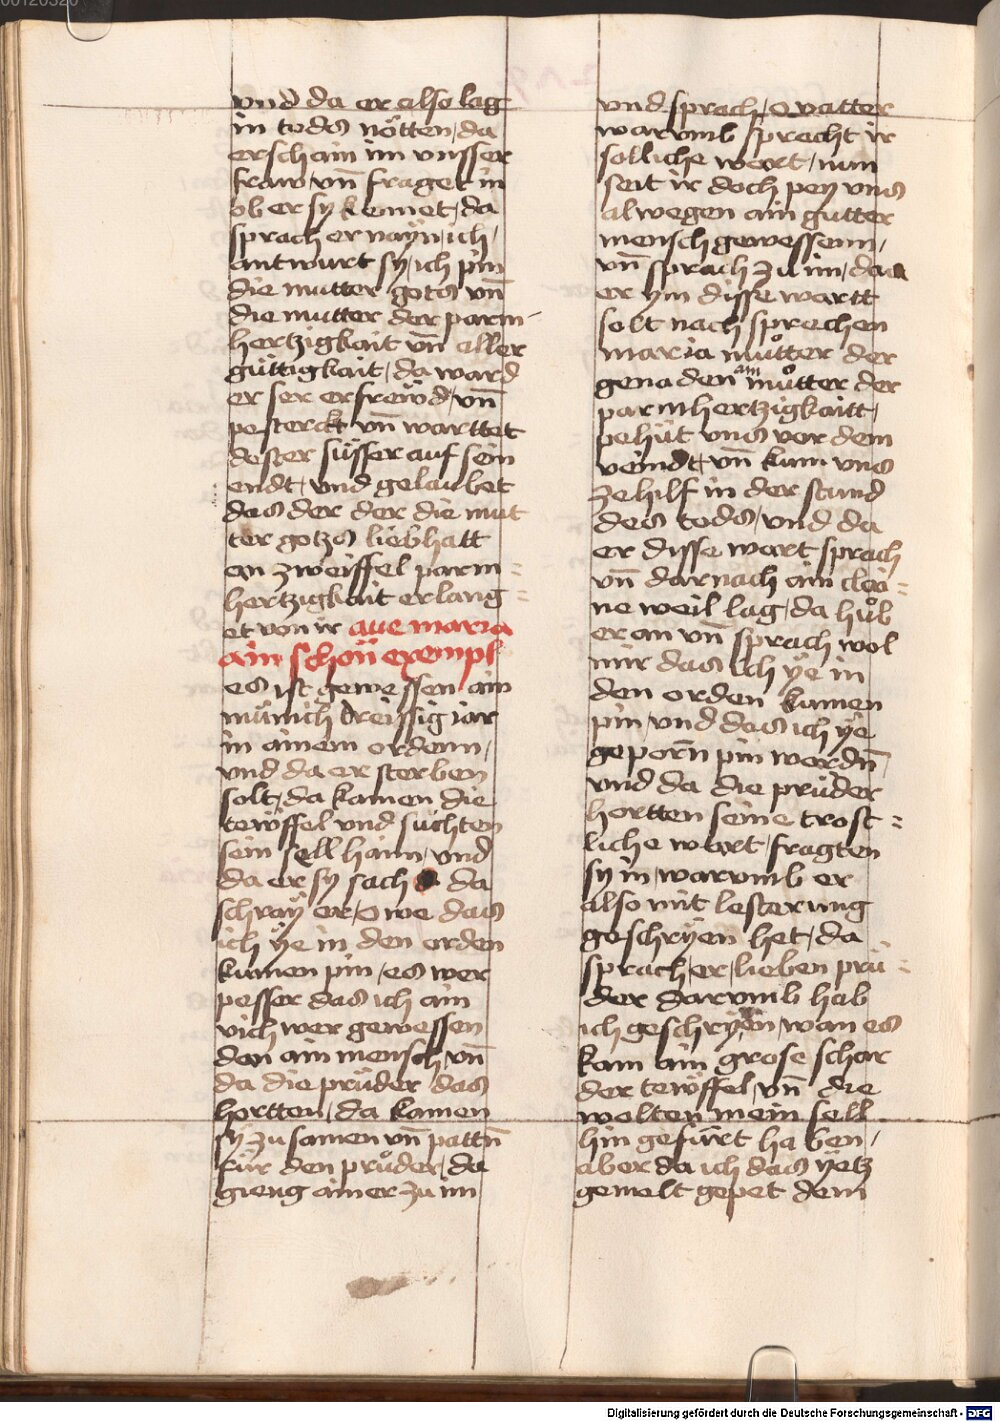 vnd da er also lag
in tods nötten / da
erschain im vnsser
fraw / vn̄ fraget in
ob er sy kennet / da
sprach er nayn / ich /
antwurt sy / ich pin
die mutter gots vn̄
die mutter der parm-
hertzigkait vn̄ aller
güttigkait / da ward
er ser erfrewd / vn̄
pesterckt vn̄ warttet
dester süsser auf sein
endt / vnd gelaubet
das der der die mut
ter gotzs liebhatt
an zweiffel parm=
hertzigkait erlang=
et von ir aue maria
ain schön exempl
es ist gewessen ain
münich dreissig iar
in ainem ordenn /
vnd da er sterben
solt / da kamen die
tewffel vnd suchten
sein sell hain / vnd
da er sy sach da
schray er / o we das
ich ÿe in den orden
kumen pin / es wer
pesser das ich ain
vich wer gewessen
dan ain mensch / vn̄
da die prüder das
hortten / da kamen
sy zu samen vn̄ pattn̄
für den průder / da
gieng ainer zu im
vnd sprach / o vatter
warumb sprecht ir
solliche wort / nun
seit ir doch pey vns
alwegen ain gutter
mensch gewessenn /
vn̄ sprach zu im / das
er ym disse wartt
solt nach sprechen
maria můtter der
genaden ain můtter der
parmhertzigkaitt /
pehüt vns vor dem
veindt / vn̄ kum vns
ze hilf in der stund
des tods / vnd da
er disse wort sprach
vn̄ darnach ain clai=
ne weil lag / da hůb
er an vn̄ sprach wol
mir das ich ÿe in
den orden kumen
pin / vnd das ich ÿe
geporn̄ pin wordn̄
vnd da die průder
hortten seine trost=
liche wort / fragten
sy in / warumb er
also mit lesterung
geschrÿen het / da
sprach / er / lieben prü=
der darumb hab
ich geschrÿen / wan es
kam ain grose schar
der tewffel / vn̄ die
wolten mein sell
hin gefürt haben /
aber da ich das ÿetz
gemelt gepet dem
Digitalisierung gefördert durch die Deutsche Forschungsgemeinschaft - DFG